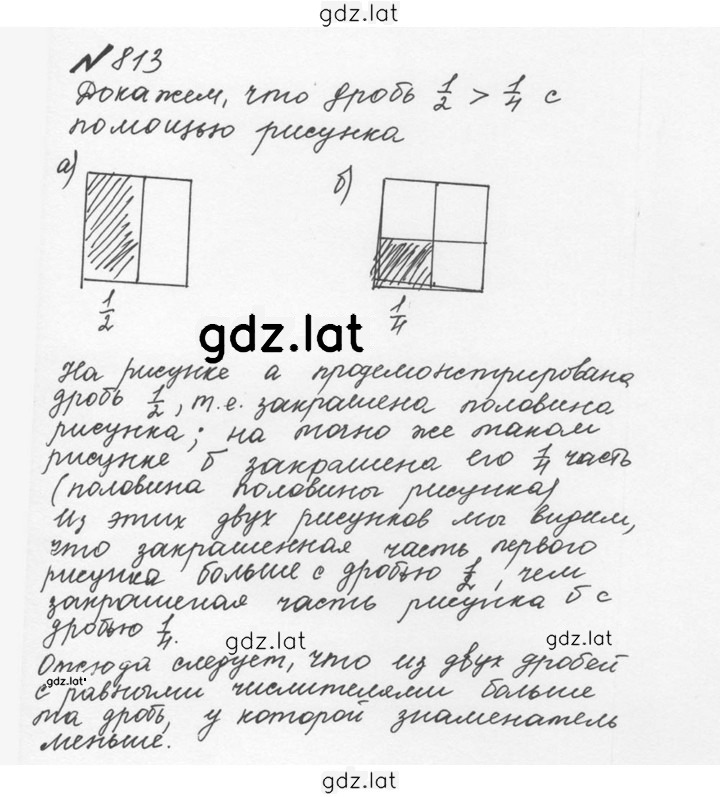 gdz.lat
№ 813
Докажем, что дробь 1/2 > 1/4 с
помощью рисунка
а)
б)
1/2
1/4
gdz.lat
На рисунке а продемонстрирована
дробь 1/2, т.е. закрашена половина
рисунка; на точно же таком
рисунке б закрашена его 1/4 часть
(половина половины рисунка)
Из этих двух рисунков мы видим,
что закрашенная часть первого
рисунка больше с дробью 1/2, чем
закрашеная часть рисунка б с
дробью 1/4.
gdz.lat
gdz.lat
Отсюда следует, что из двух дробей
gdz.lat
с равными числителями больше
та дробь, у которой знаменатель
меньше.
gdz.lat